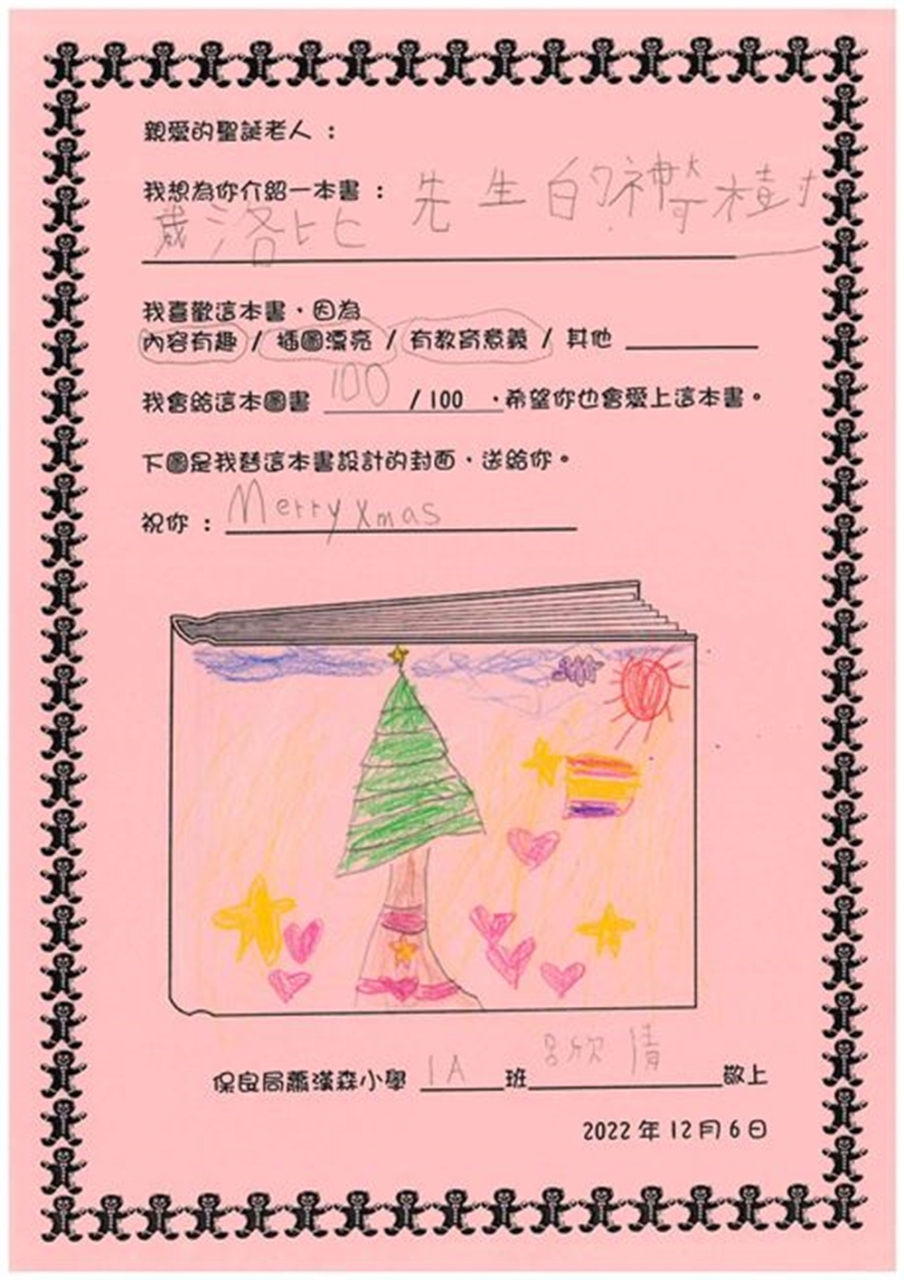 親愛的聖誕老人：
我想為你介紹一本書：先生的神奇樹
葳洛比
我喜歡這本書，因為
內容有趣 / 插圖漂亮 / 有教育意義 / 其他
我會給這本圖書 100 /100 ，希望你也會愛上這本書。
下圖是我替這本書設計的封面，送給你。
祝你：Merry xmas
保良局蕭漢森小學 1A 班 呂欣清 敬上
2022年12月6日